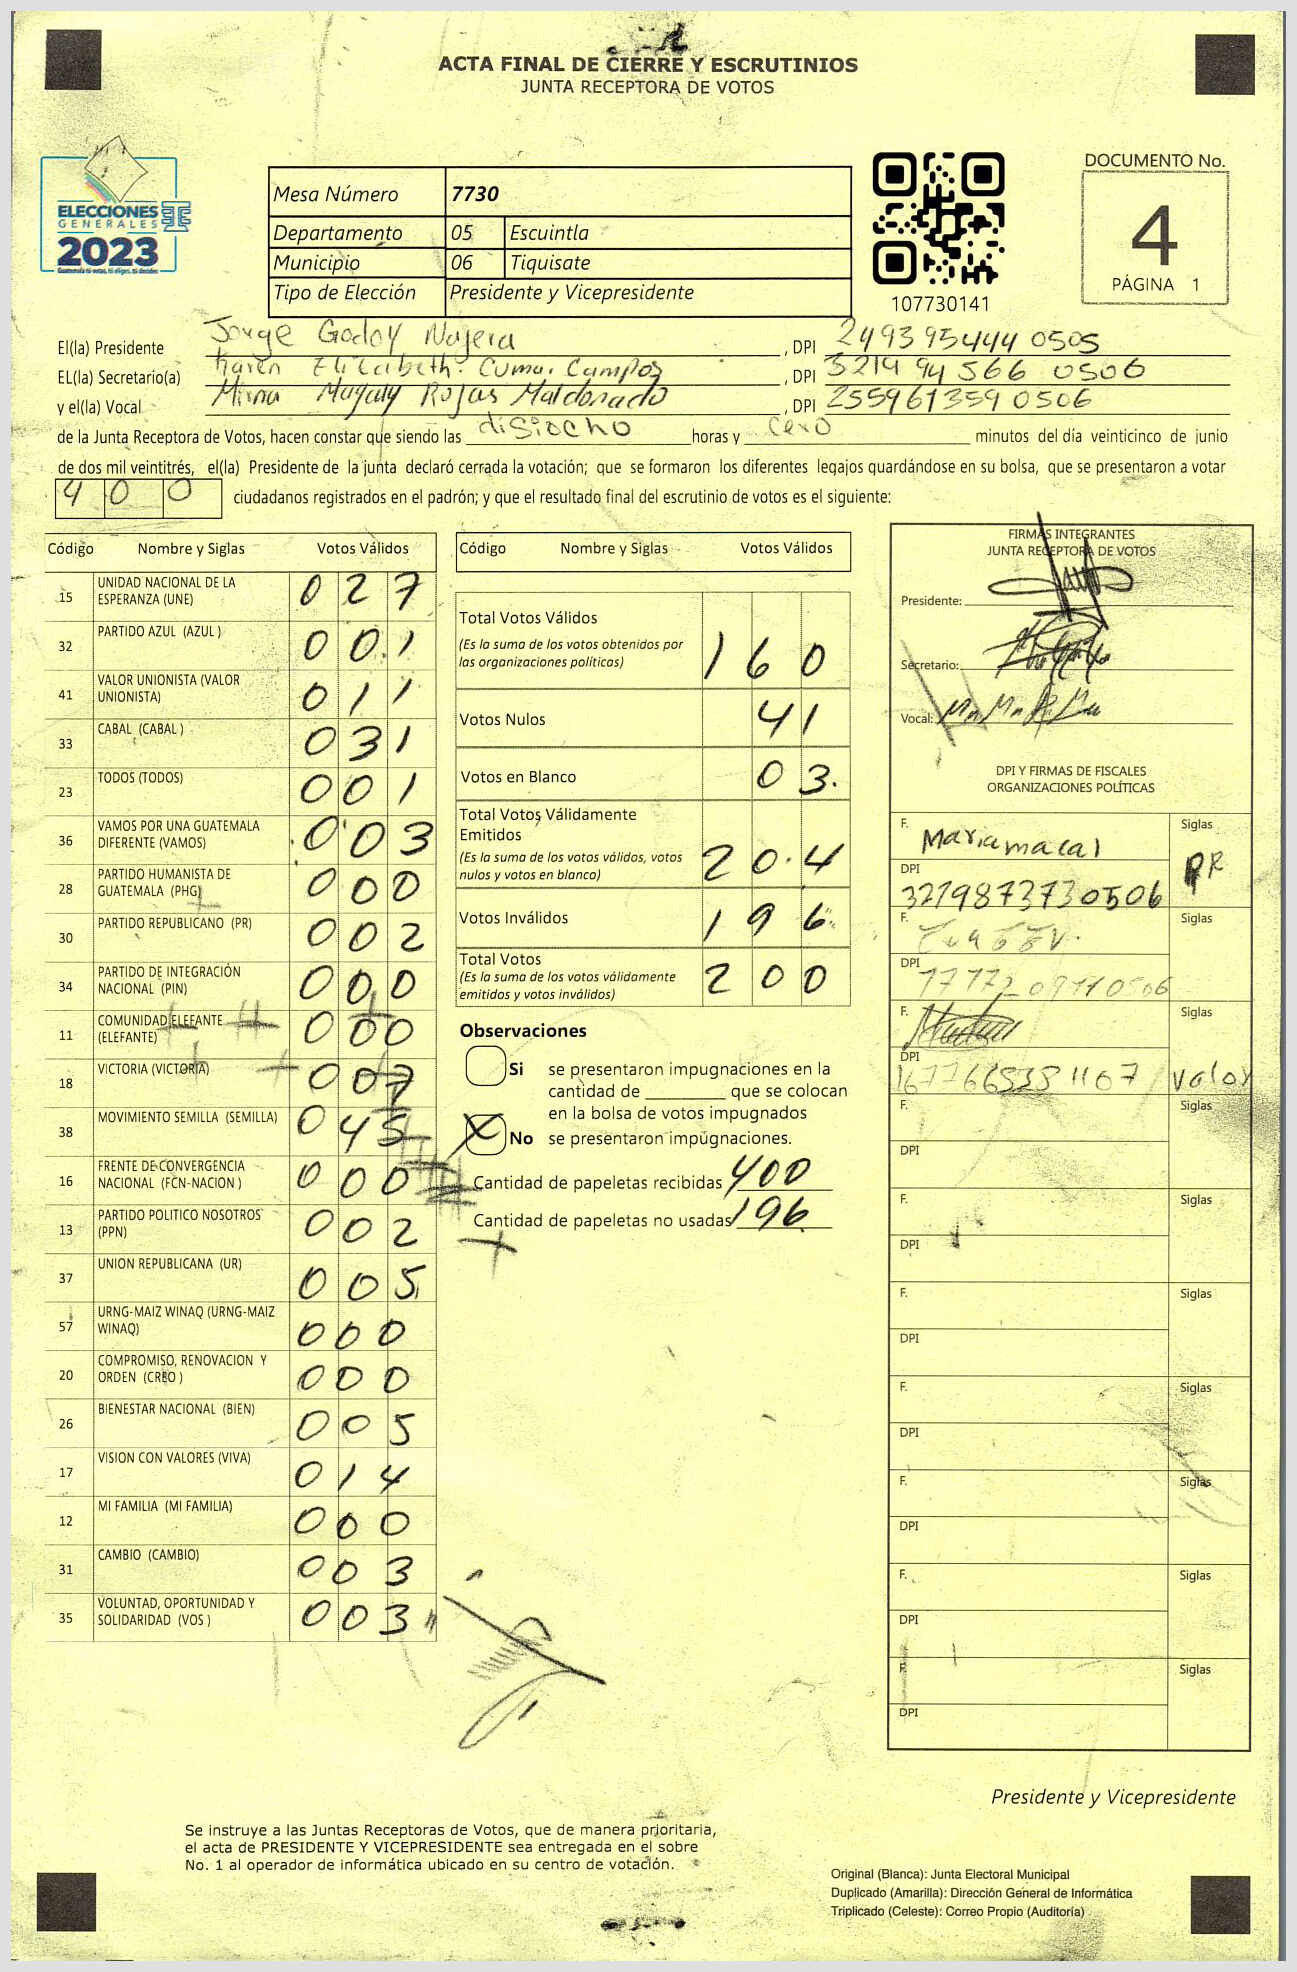 ACTA FINAL DE CIERRE Y ESCRUTINIOS
JUNTA RECEPTORA DE VOTOS
ELECCIONES
GENERALES
2023
Mesa Número 7730
Departamento 05 Escuintla
Municipio 06 Tiquisate
Tipo de Elección Presidente y Vicepresidente
107730141
DOCUMENTO No.
4
PÁGINA 1
El(la) Presidente Jorge Godoy Najera, DPI 249395444 0505
EL(la) Secretario(a) Karen Elizabeth. Cumar Campos, DPI 3214 94566 0506
y el(la) Vocal Mirna Magaly Rojas Maldonado, DPI 255961359 0506
de la Junta Receptora de Votos, hacen constar que siendo las disiocho horas y cero minutos del día veinticinco de junio
de dos mil veintitrés, el(la) Presidente de la junta declaró cerrada la votación; que se formaron los diferentes legajos guardándose en su bolsa, que se presentaron a votar
400 ciudadanos registrados en el padrón; y que el resultado final del escrutinio de votos es el siguiente:
Código Nombre y Siglas Votos Válidos
15 UNIDAD NACIONAL DE LA ESPERANZA (UNE) 027
32 PARTIDO AZUL (AZUL ) 001
41 VALOR UNIONISTA (VALOR UNIONISTA) 011
33 CABAL (CABAL ) 031
23 TODOS (TODOS) 001
36 VAMOS POR UNA GUATEMALA DIFERENTE (VAMOS) 003
28 PARTIDO HUMANISTA DE GUATEMALA (PHG) 000
30 PARTIDO REPUBLICANO (PR) 002
34 PARTIDO DE INTEGRACIÓN NACIONAL (PIN) 000
11 COMUNIDAD ELEFANTE (ELEFANTE) 000
18 VICTORIA (VICTORIA) 007
38 MOVIMIENTO SEMILLA (SEMILLA) 045
16 FRENTE DE CONVERGENCIA NACIONAL (FCN-NACION ) 000
13 PARTIDO POLITICO NOSOTROS (PPN) 002
37 UNION REPUBLICANA (UR) 005
57 URNG-MAIZ WINAQ (URNG-MAIZ WINAQ) 000
20 COMPROMISO, RENOVACION Y ORDEN (CREO ) 000
26 BIENESTAR NACIONAL (BIEN) 005
17 VISION CON VALORES (VIVA) 014
12 MI FAMILIA (MI FAMILIA) 000
31 CAMBIO (CAMBIO) 003
35 VOLUNTAD, OPORTUNIDAD Y SOLIDARIDAD (VOS ) 003
Código Nombre y Siglas Votos Válidos
Total Votos Válidos 160
(Es la suma de los votos obtenidos por
las organizaciones políticas)
Votos Nulos 41
Votos en Blanco 03
Total Votos Válidamente
Emitidos 204
(Es la suma de los votos válidos, votos
nulos y votos en blanco)
Votos Inválidos 196
Total Votos 200
(Es la suma de los votos válidamente
emitidos y votos inválidos)
Observaciones
Si se presentaron impugnaciones en la
cantidad de ________ que se colocan
en la bolsa de votos impugnados
X No se presentaron impugnaciones.
Cantidad de papeletas recibidas 400
Cantidad de papeletas no usadas 196
FIRMAS INTEGRANTES
JUNTA RECEPTORA DE VOTOS
Presidente:
Secretario:
Vocal:
DPI Y FIRMAS DE FISCALES
ORGANIZACIONES POLÍTICAS
F. Mariamacal Siglas PR
DPI 3219873730506
F. Siglas
DPI
F. Siglas Valor
DPI
F. Siglas
DPI
F. Siglas
DPI
F. Siglas
DPI
F. Siglas
DPI
F. Siglas
DPI
F. Siglas
DPI
F. Siglas
DPI
Presidente y Vicepresidente
Se instruye a las Juntas Receptoras de Votos, que de manera prioritaria,
el acta de PRESIDENTE Y VICEPRESIDENTE sea entregada en el sobre
No. 1 al operador de informática ubicado en su centro de votación.
Original (Blanca): Junta Electoral Municipal
Duplicado (Amarilla): Dirección General de Informática
Triplicado (Celeste): Correo Propio (Auditoría)